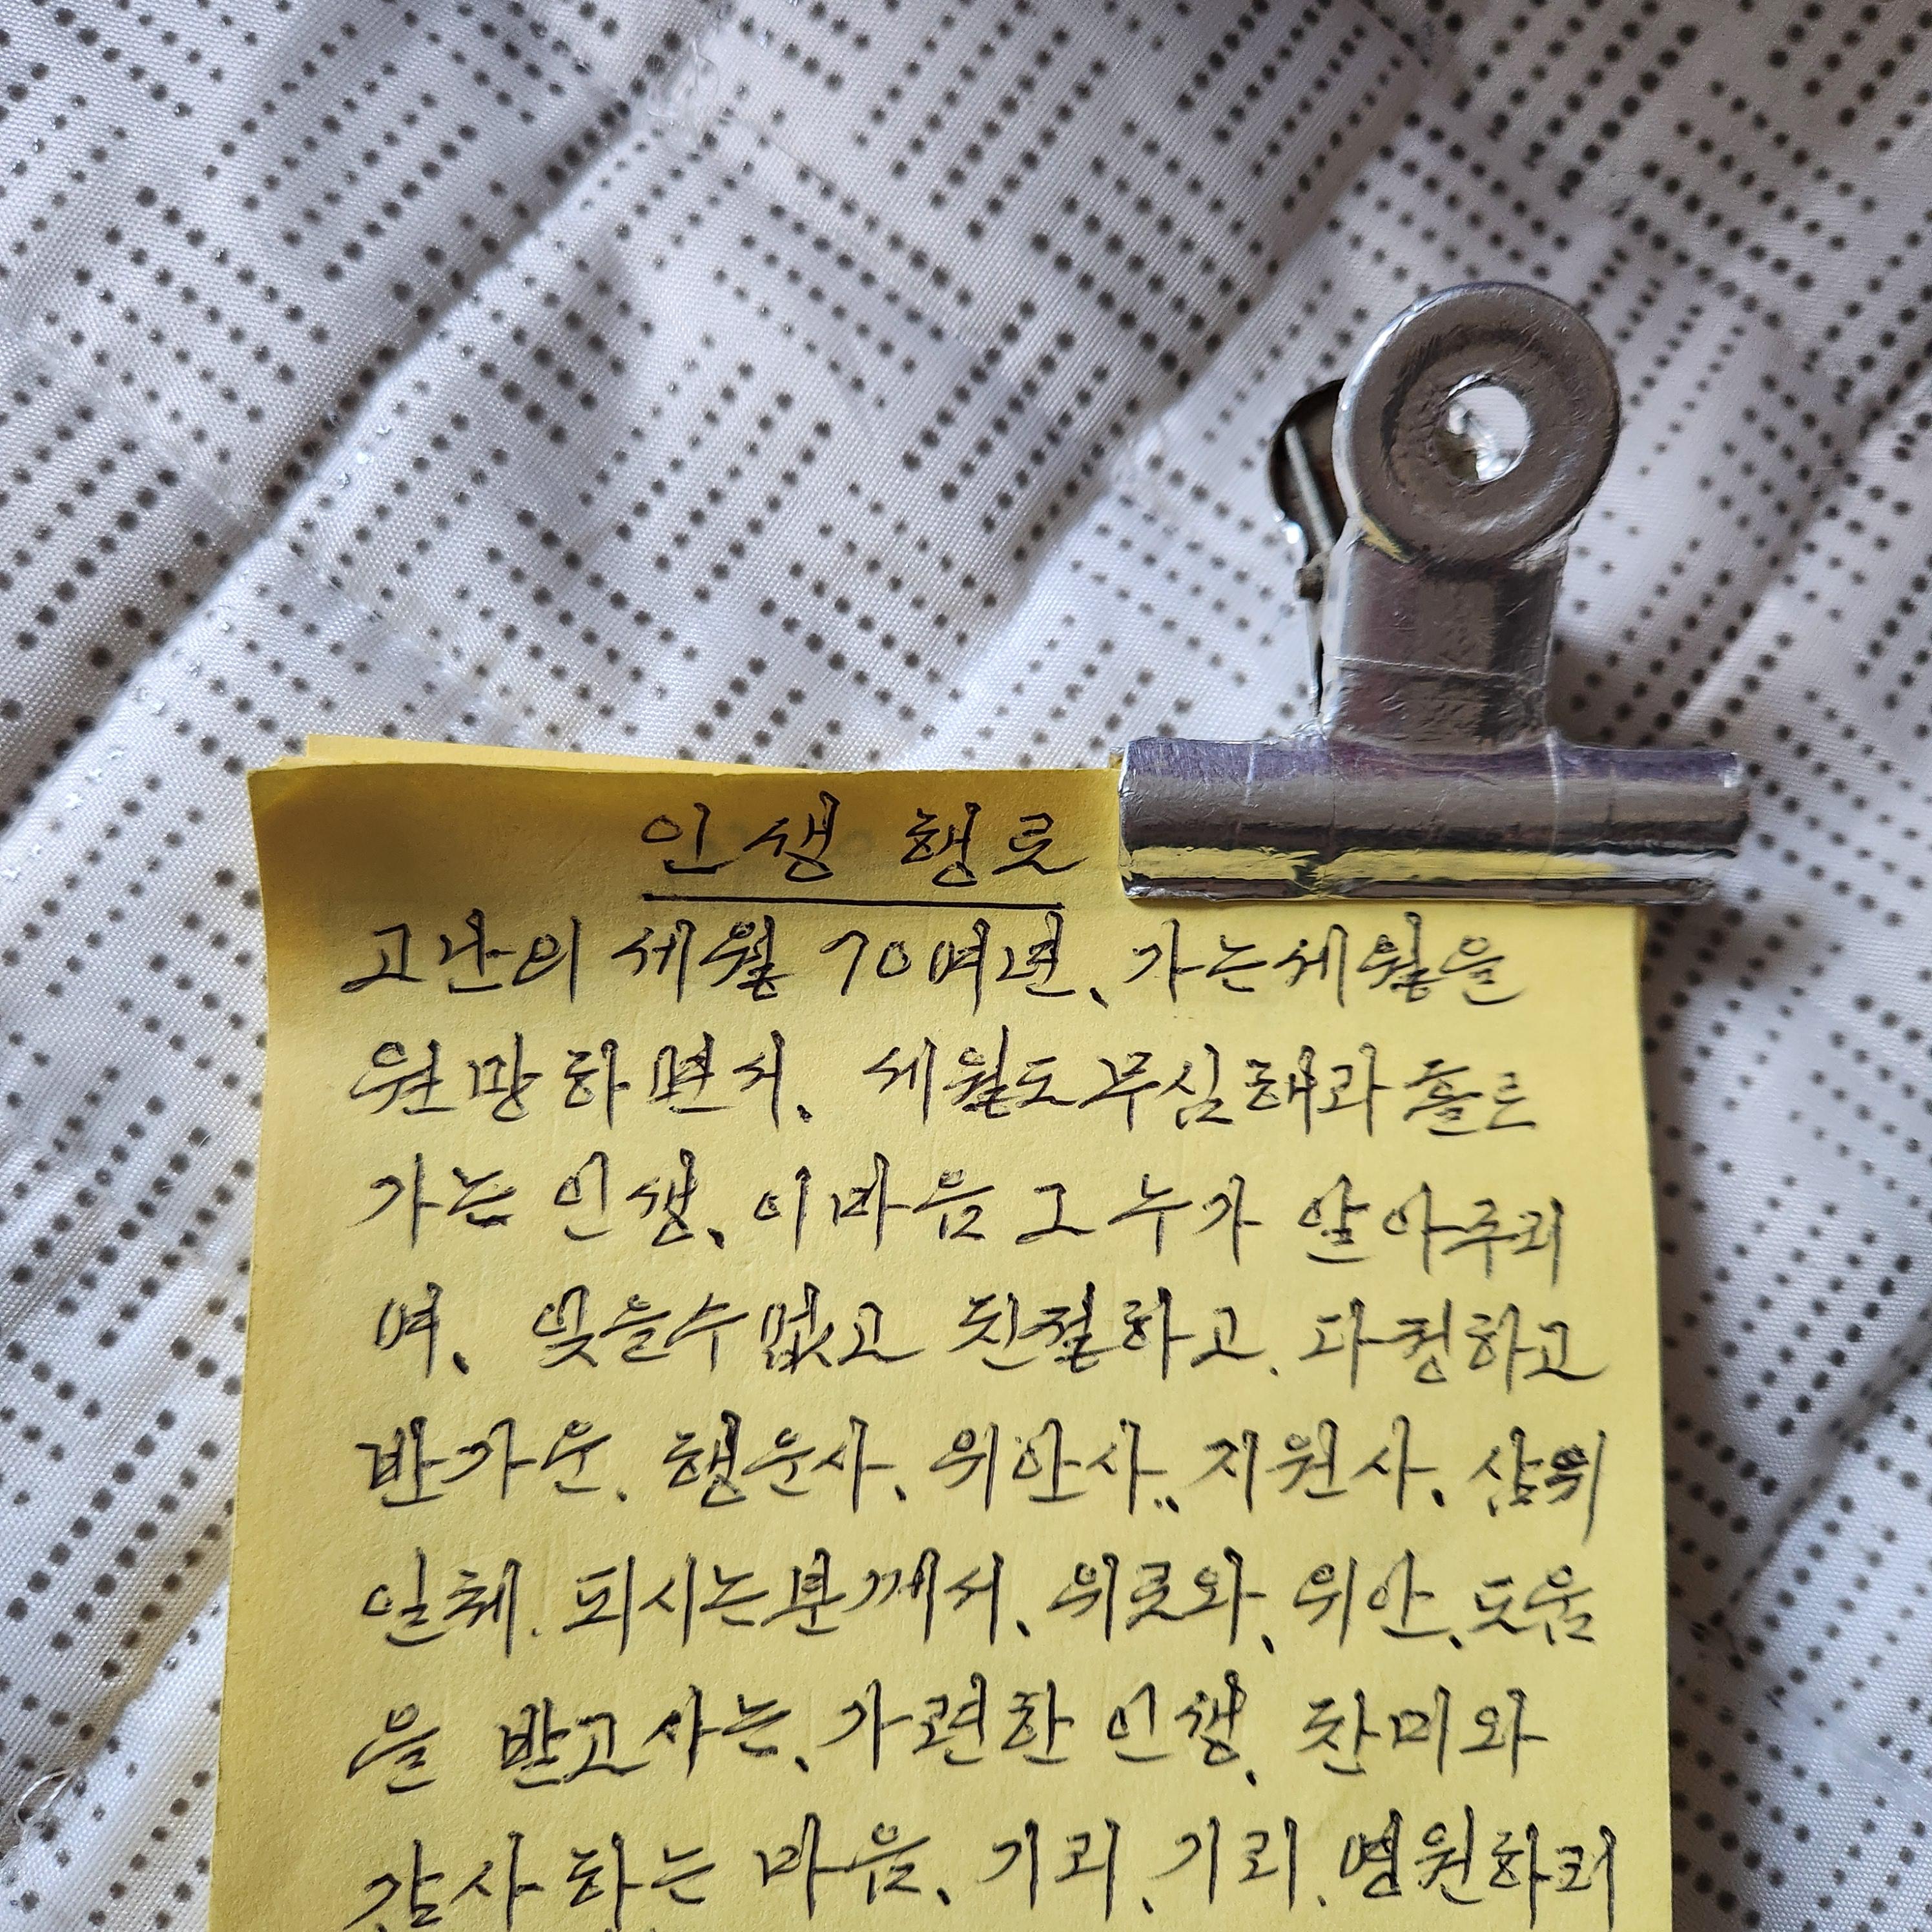 인생 행로
고난의 세월 70여년、가는세월을
원망하면서、세월도무심해라 홀로
가는 인생、이마음 그 누가 알아주리
여、잊을수없고 친절하고、다정하고
반가운、행운사、위안사、지원사、삼위
일체、되시는분께서、위로와、위안、도움
을 받고사는、가련한 인생、찬미와
감사하는 마음、기리、기리、영원하리